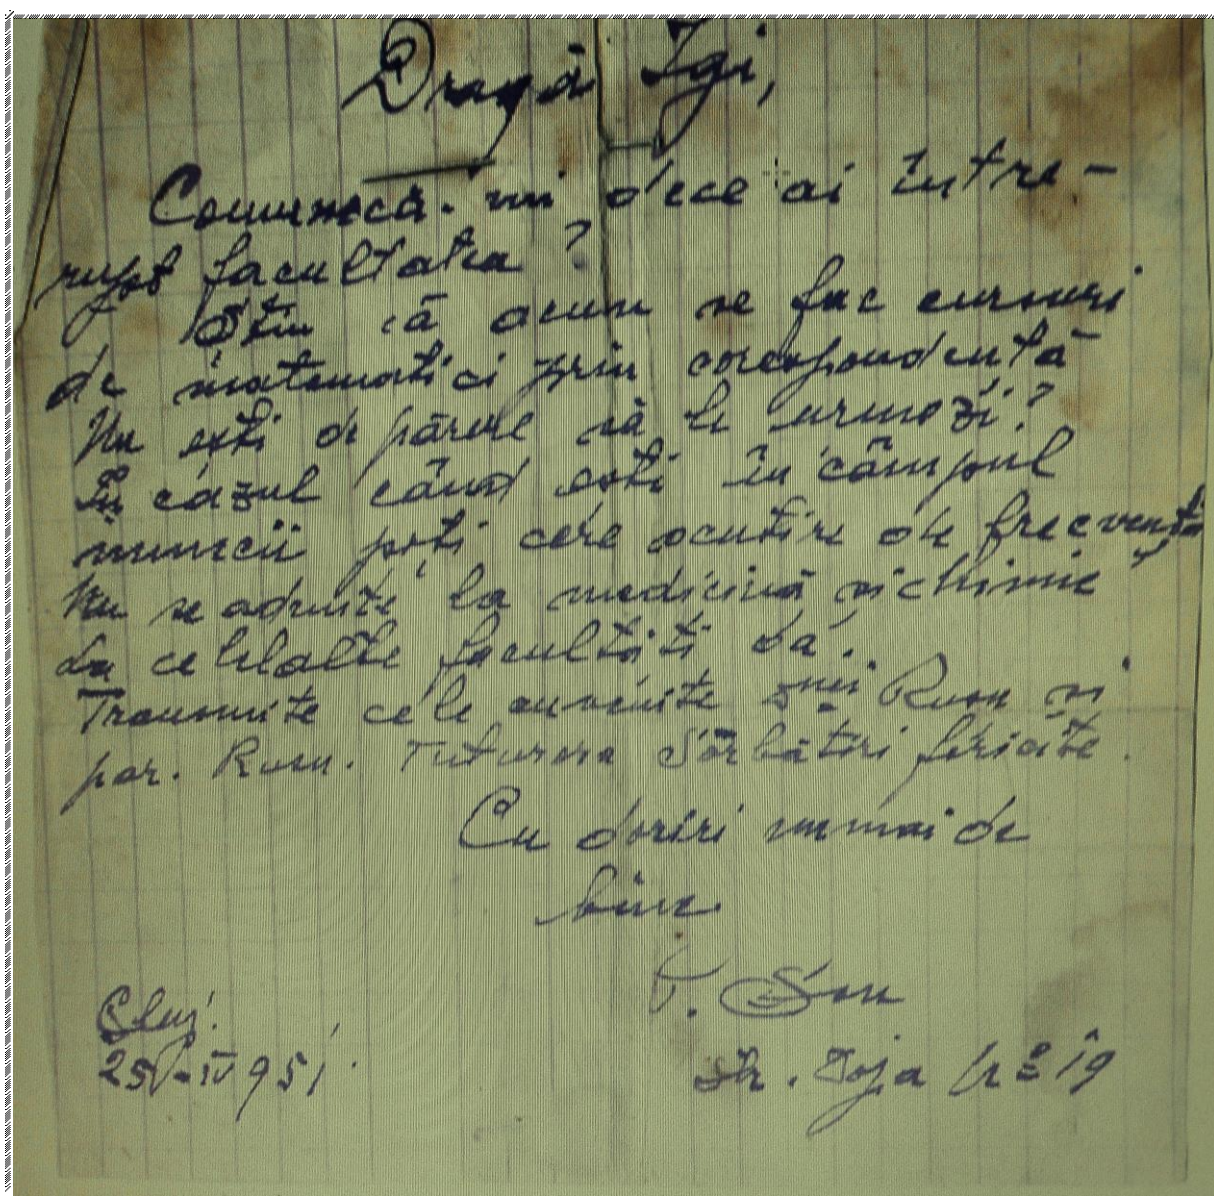 Dragă Igi,
Comunică-mi dece ai între-
rupt facultatea?
Știu că acum se fac cursuri
de matematici prin corespondentă
Nu ești de părere să le urmezi?
În cazul când ești în câmpul
muncii poți cere scutire de frecventă
Nu se admite la medicină și chimie
La celelalte facultăți da.
Transmite cele cuvenite Rusu și
par. Rusu. Tuturora Sărbători fericite.
Cu doriri numai de
bine.
Cluj.
25-IV 951.
Str. Doja Nr 19